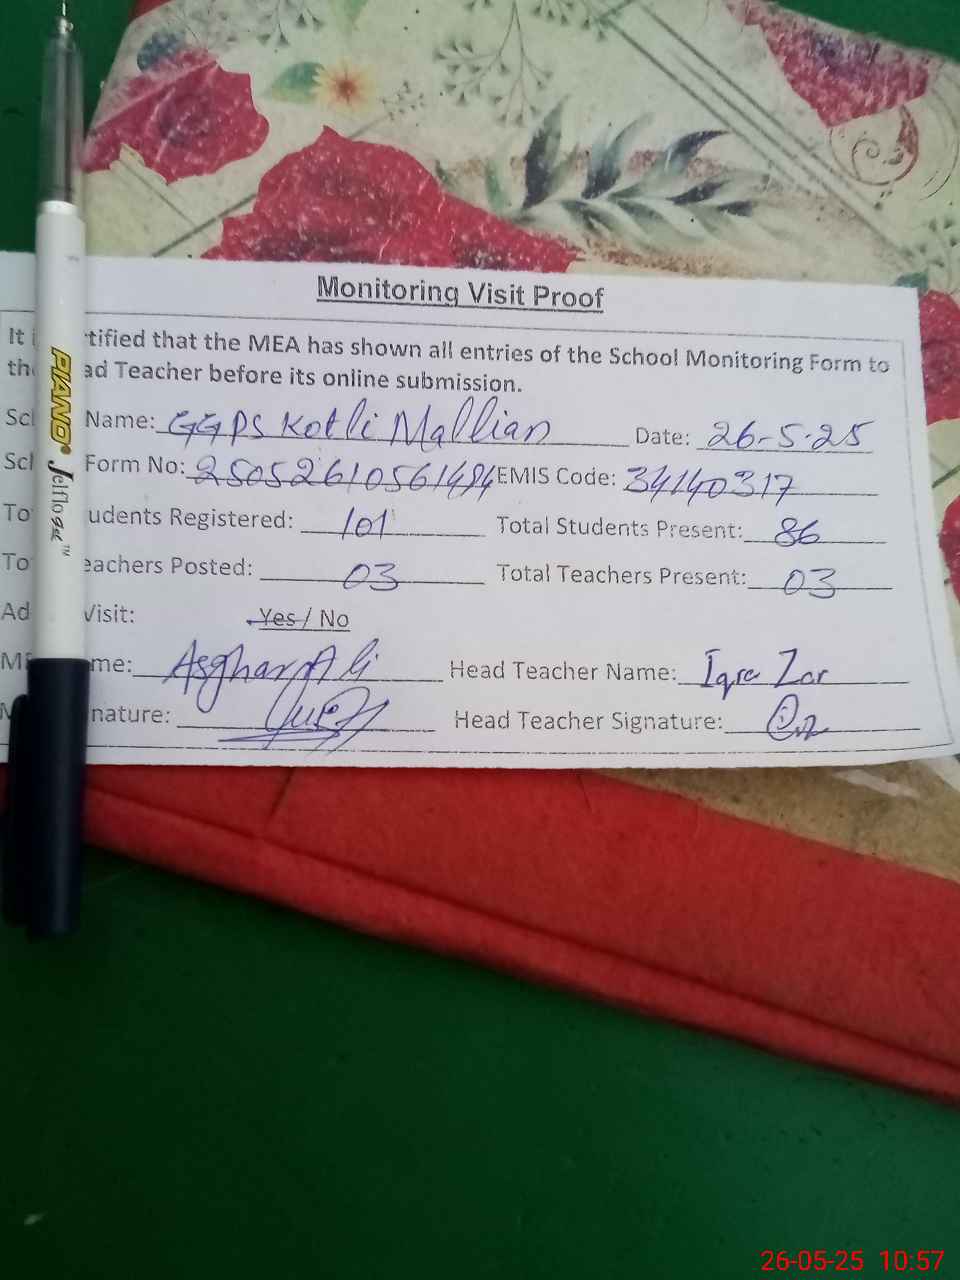 Monitoring Visit Proof
It i rtified that the MEA has shown all entries of the School Monitoring Form to
the ad Teacher before its online submission.
Scl Name: GGPS Kotli Mallian Date: 26-5-25
Scl Form No: 25052610561484 EMIS Code: 34140317
To udents Registered: 101 Total Students Present: 86
To eachers Posted: 03 Total Teachers Present: 03
Ad Visit: Yes / No
ME me: Asghar Ali Head Teacher Name: Iqra Zar
M nature: Head Teacher Signature:
PIANO Jelflo gel ™
26-05-25 10:57